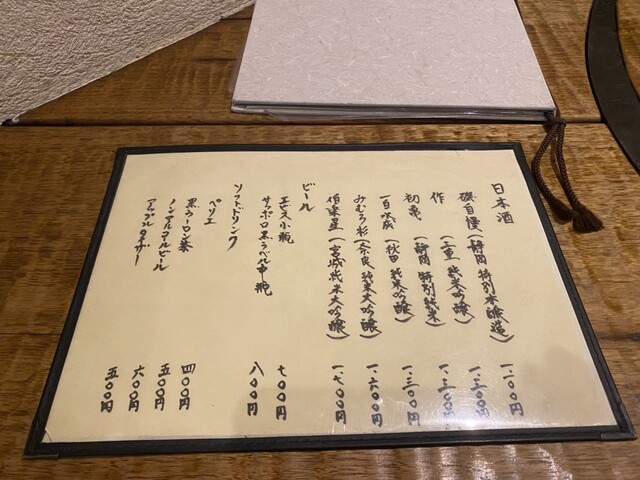 日本酒
磯自慢(静岡 特別本醸造) 一.一〇〇円
作(三重 純米吟醸) 一.三〇〇円
初亀(静岡 特別純米) 一.三〇〇円
一白水成(秋田 純米吟醸) 一.三〇〇円
みむろ杉(奈良 純米大吟醸) 一.六〇〇円
伯楽星(宮城 純米大吟醸) 一.七〇〇円
ビール
エビス小瓶 七〇〇円
サッポロ黒ラベル中瓶 八〇〇円
ソフトドリンク
ペリエ 四〇〇円
黒ウーロン茶 五〇〇円
ノンアルコールビール 六〇〇円
アップルタイザー 五〇〇円